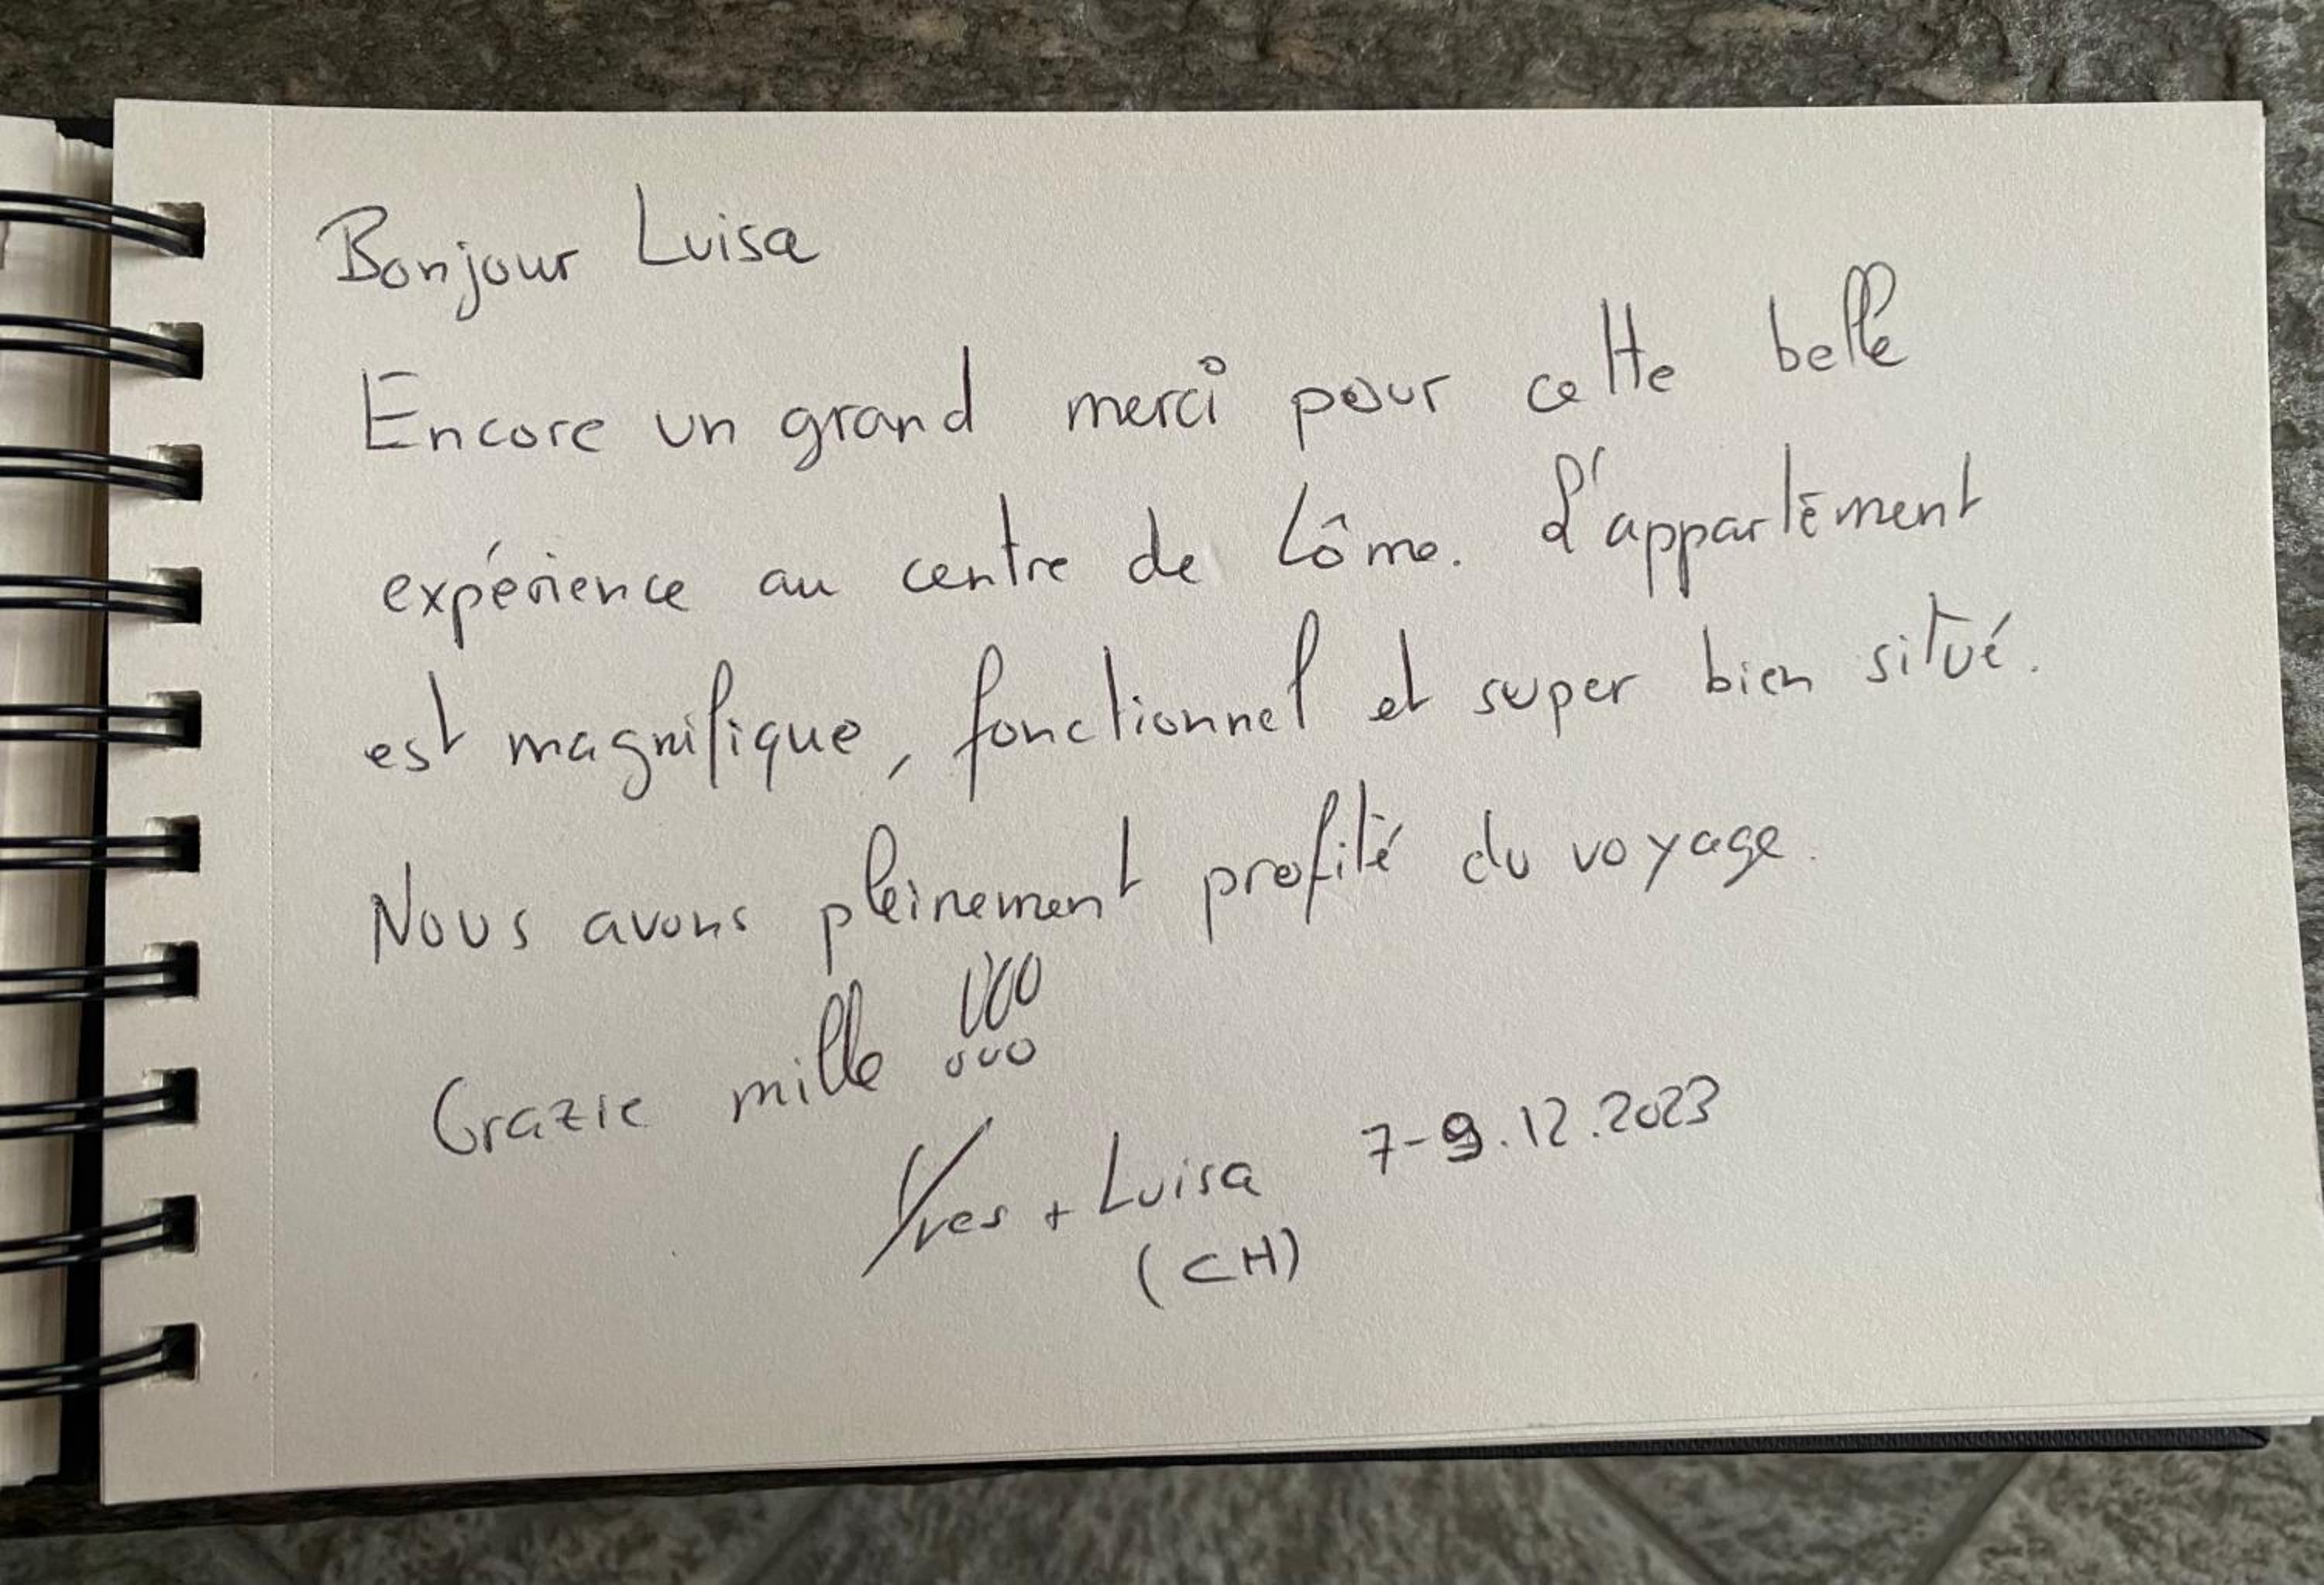 Bonjour Luisa
Encore un grand merci pour cette belle
expérience au centre de Côme. L'appartement
est magnifique, fonctionnel et super bien situé.
Nous avons pleinement profité du voyage.
Grazie mille !!!
Yves + Luisa 7-9.12.2023
(CH)